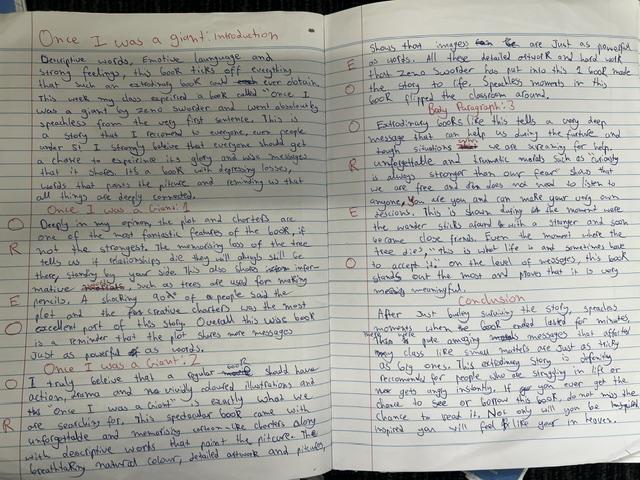 Once I was a giant: introduction
Descriptive words, Emotive language and
strong feelings, this book ticks off everything
that such an extrodinary book could ever obtain.
This week my class experied a book called "Once I
was a giant by Zeno Sworder and went absoloutely
speachless from the very first sentence. This is
a story that I recomend to everyone, even people
under 5! I strongly beleive that everyone should get
a chance to expeirince its glory and wise messages
that it shows. It's a book with depressing losses,
words that paint the pitcure, and reminding us that
all things are deeply connected.
Once I was a Giant: 1
O Deeply in my opinion, the plot and charters are
one of the most fantastic features of the book, if
R not the strongest. The memorising loss of the tree
tells us if relationships die they will always still be
there, standing by your side. This also shows infor-
mative, such as trees are used for making
E pencils. A shocking 90% of people said the
plot and the creative charters was the most
O excellent part of this story. Overall this wise book
is a reminder that the plot shares more messages
Just as powerful as words.
Once I was a Giant: 2
O I truly beleive that a regular book should have
action, drama and vividly coloured illustrations and
"Once I was a Giant" is exactly what we
are searching for. This spectacular book came with
R unforgettable and memorising cartoon-like charters along
with descriptive words that paint the pitcure. The
breathtaking natural colour, detailed artwork and pitcures,
shows that images are Just as powerful
E as words. All these detailed artwork and hard work
that Zeno Sworder has put into this book made
O the story to life. Speachless moments in this
book flipped the classroom around.
Body Paragraph: 3
O Extrodinary books like this tells a very deep
message that can help us during the furture and
tough situations we are screaming for help.
R Unforgettable and traumatic morals such as "curiosity
is always stronger than our fear" show that
we are free and does not need to listen to
anyone, You are you and can make your very own
E descions. This is shown during the moment were
the wander sticks around with a stranger and soon
become close freinds. Even the moment where the
tree dies, "this is what life is and sometimes have
O to accept it." on the level of messages, this book
stands out the most and proves that it is very
meaningful.
Conclusion
After Just barley surviving the story, speachless
moments when the book ended lasted for minutes
amazing messages that affected
my class like small matters are Just as tricky
as big ones. This extrodinary story is definitley
reccomended for people who are struggling in life or
gets angry instantly. If you ever get the
chance to see or borrow this book, do not miss the
chance to read it. Not only will you be
inspired you will feel like your in Heaven.